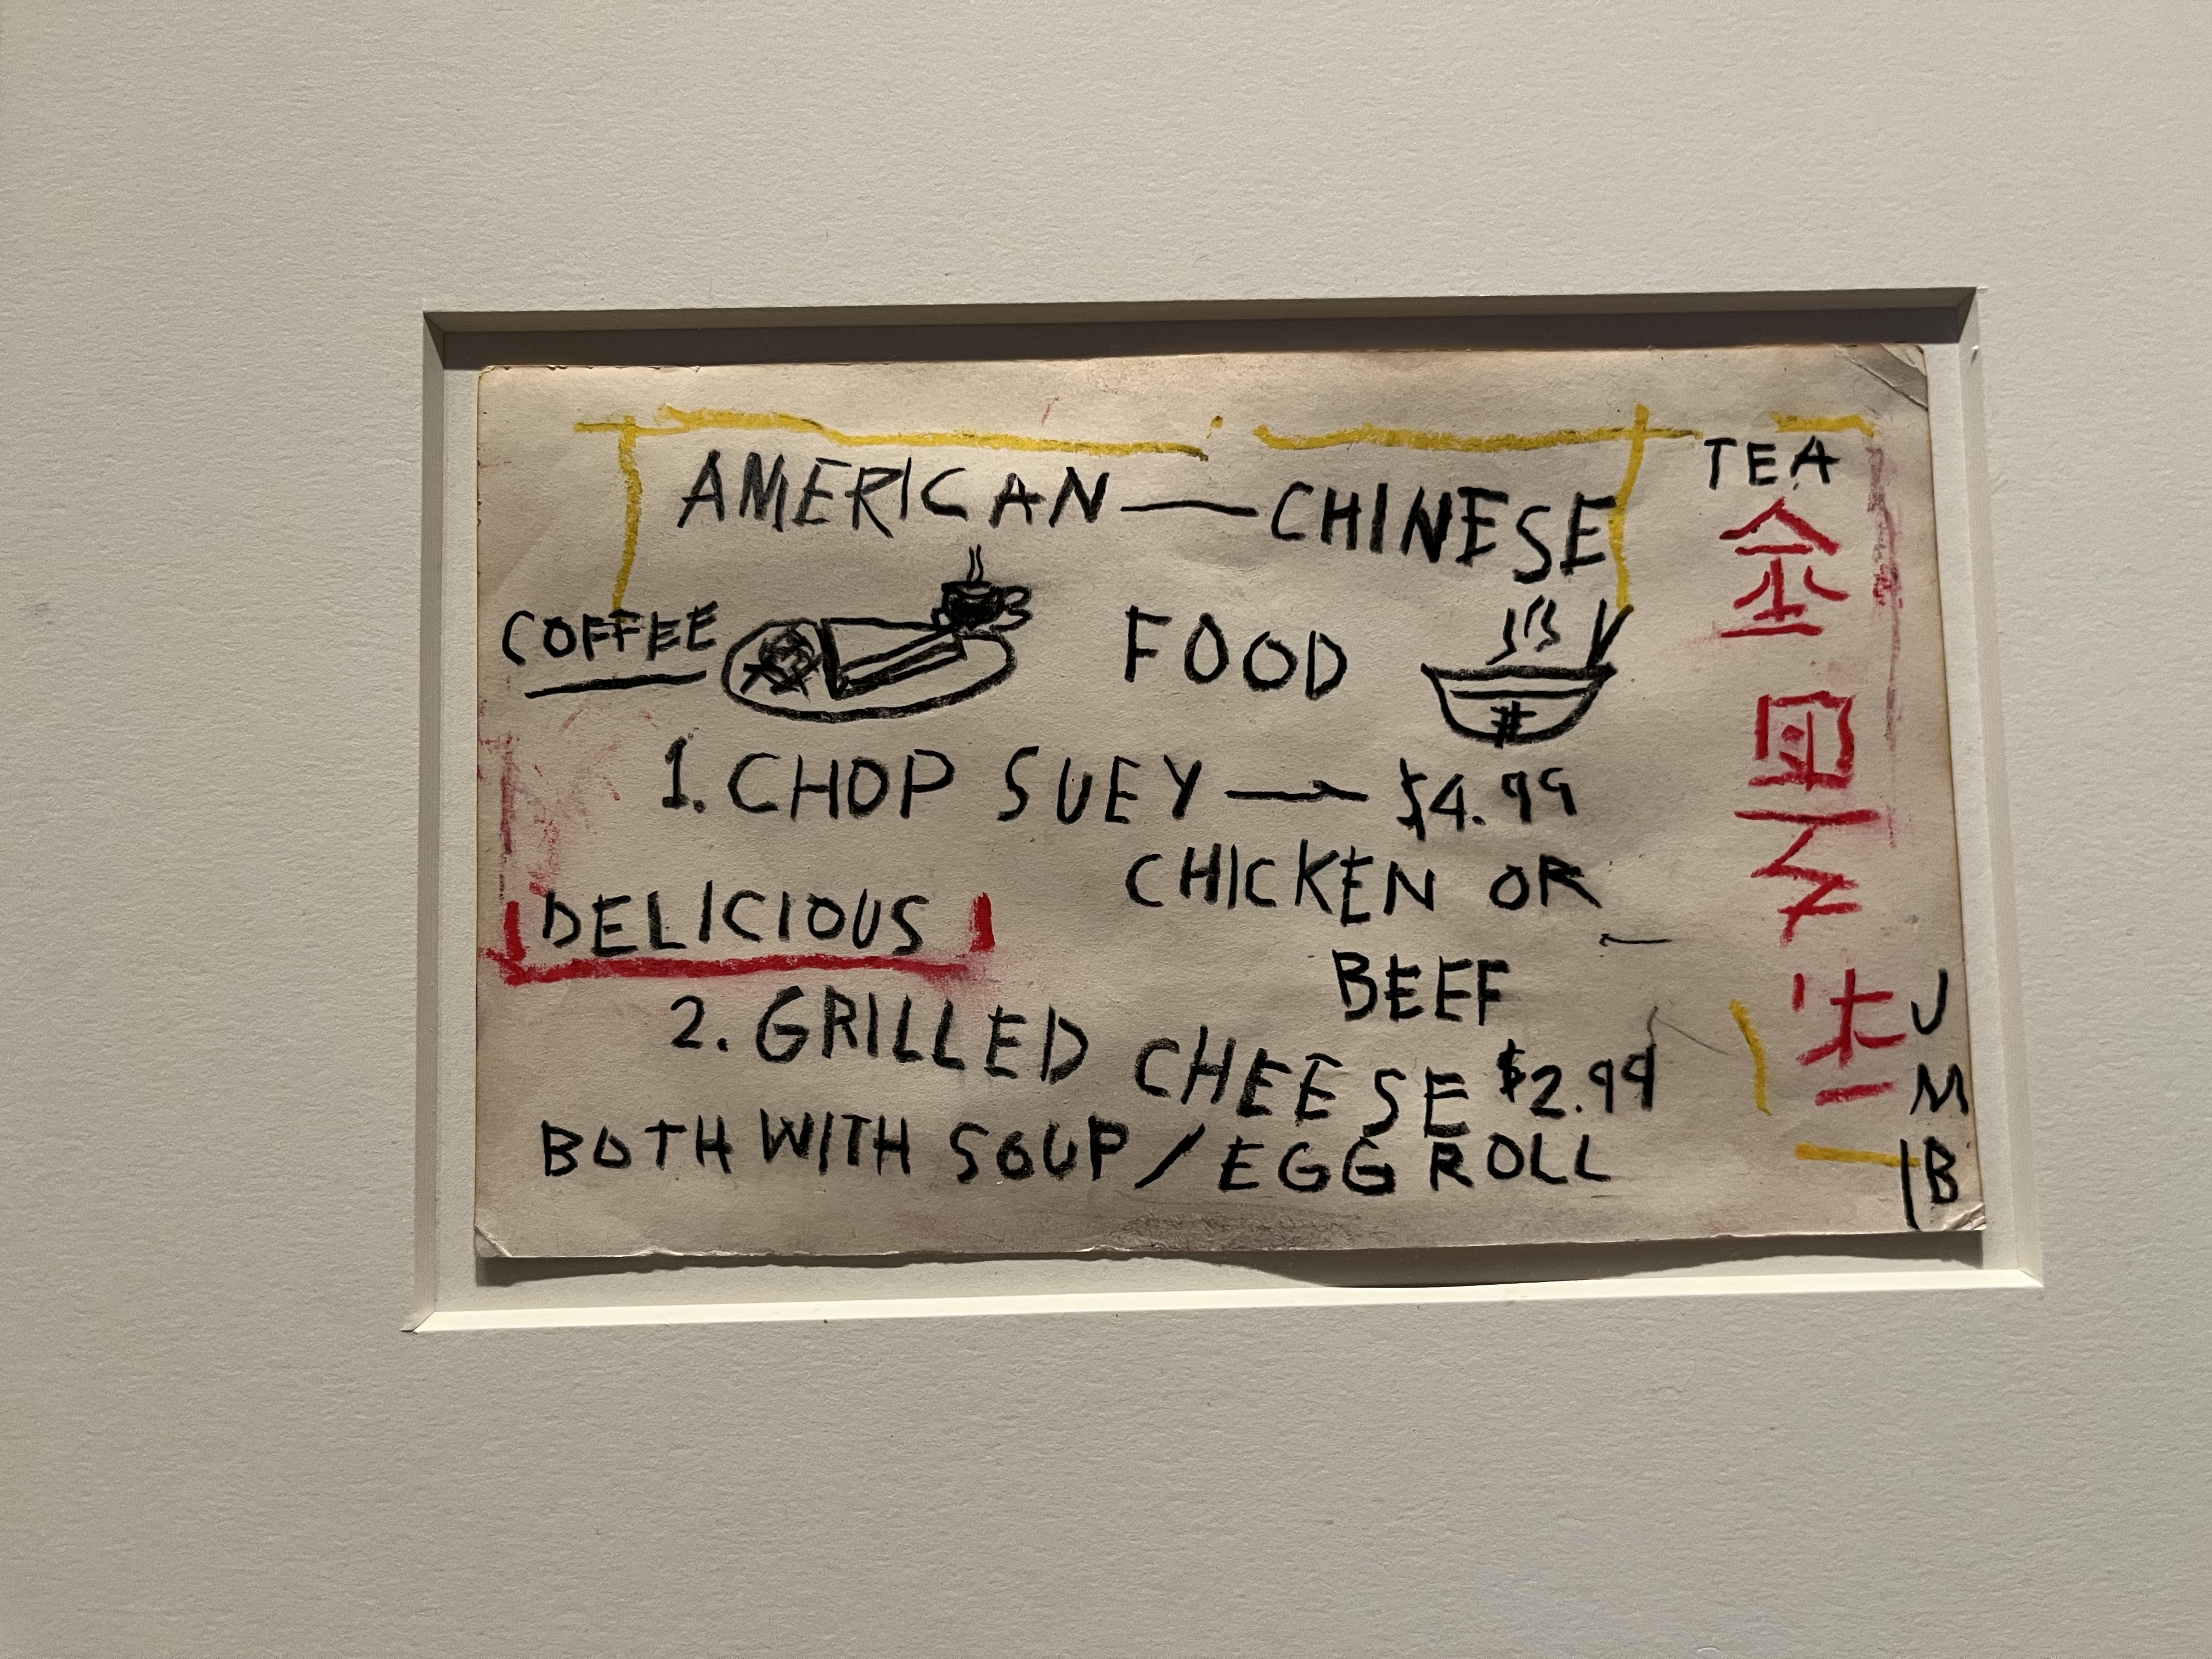 AMERICAN — CHINESE
TEA
COFFEE
FOOD
1. CHOP SUEY — $4.99
CHICKEN OR
DELICIOUS
BEEF
2. GRILLED CHEESE $2.99
BOTH WITH SOUP / EGG ROLL
金
J
M
B